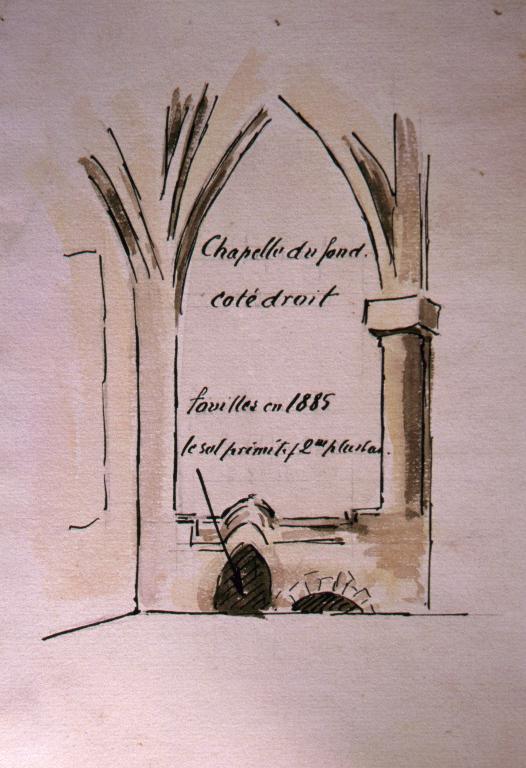 Chapelle du fond.
coté droit
fouilles en 1885
le sol primitif 2m plus bas.